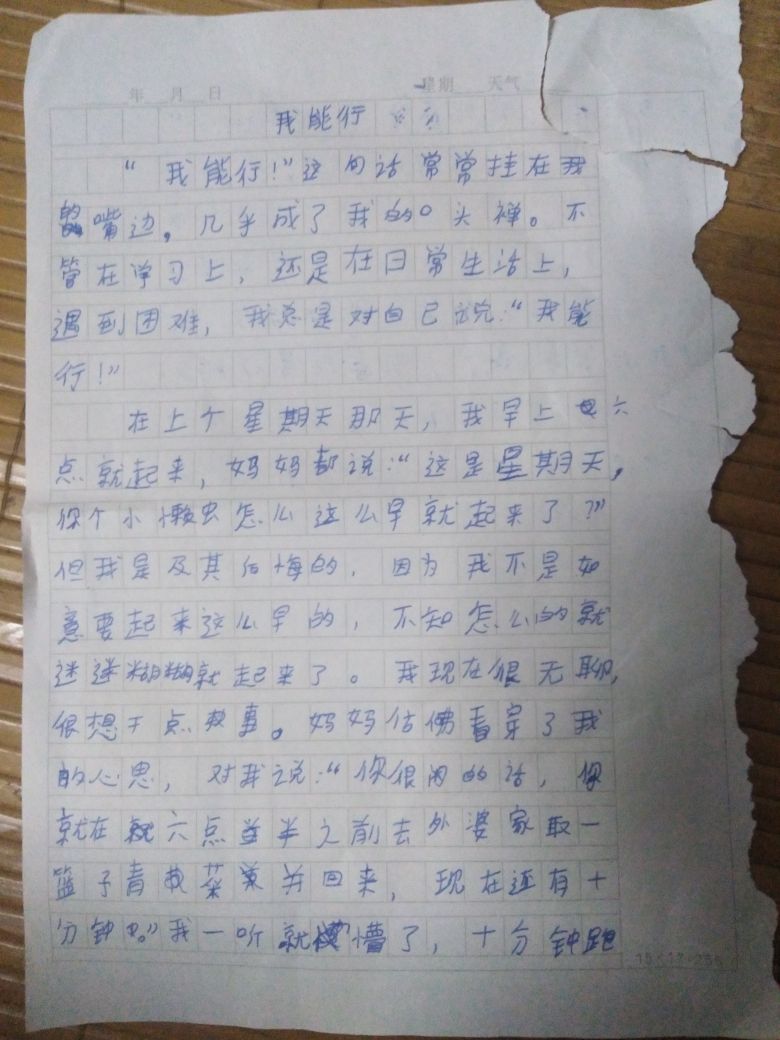 年 月 日 星期 天气
我能行
“我能行！”这句话常常挂在我
的嘴边。几乎成了我的口头禅。不
管在学习上，还是在日常生活上，
遇到困难，我总是对自己说：“我能
行！”
在上个星期天那天，我早上六
点就起来，妈妈都说：“这是星期天，
你个小懒虫怎么这么早就起来了？”
但我是及其后悔的，因为我不是如
意要起来这么早的，不知怎么的就
迷迷糊糊就起来了。我现在很无聊，
很想干点事。妈妈估佛看穿了我
的心思，对我说：“你很闲的话，你
就在六点半之前去外婆家取一
篮子青菜并回来，现在还有十
分钟。”我一听就懵了，十分钟跑
15×17=255